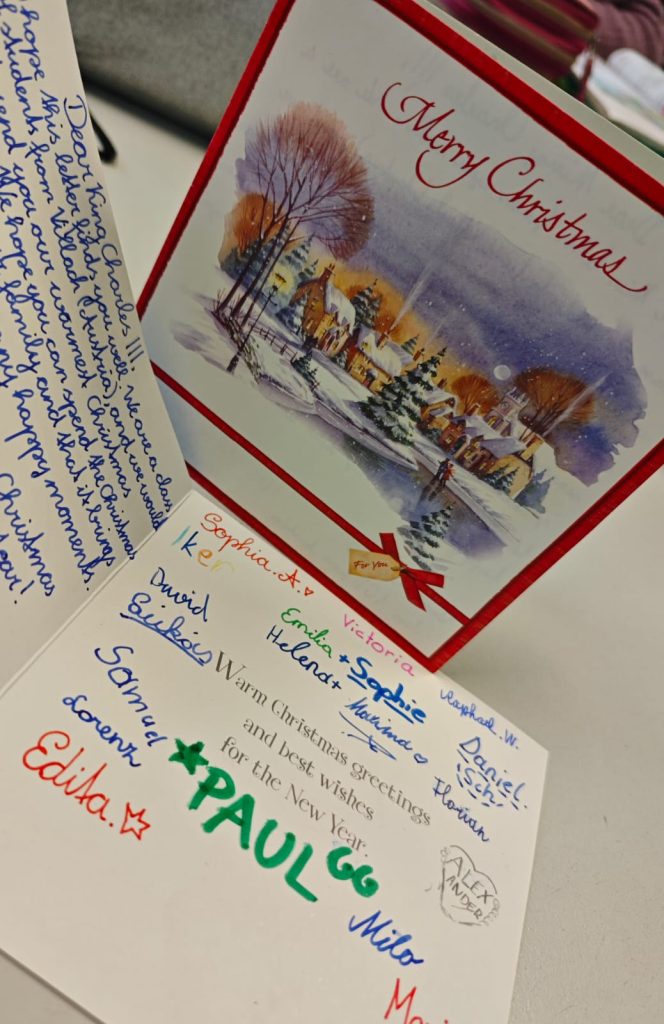 Dear King Charles III,
hope this letter finds you well. We are a class
of students from Villach (Austria), and we would
send you our warmest Christmas
We hope you can spend the Christmas
family and that it brings
ny happy moments.
Christmas
ear!
Merry Christmas
For You
Sophia.A.
Iker
David
Victoria
Emilia
Helena + Sophie
Raphael.W.
Samuel
Maxima
Daniel
Sch.
Lorenz
Florian
Edita.
Warm Christmas greetings
and best wishes
for the New Year.
PAUL GG
ALEX
ANDER
Milo